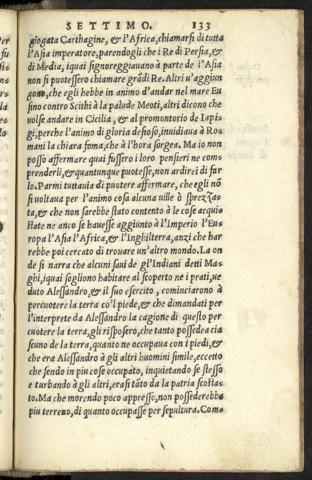 SETTIMO. 133
giogata Carthagine, & l'Africa, chiamarsi di tutta
l'Asia imperatore, parendogli che i Re di Persia, &
di Media, iquai signoreggiauano à parte de l'Asia
non si puotessero chiamare grãdi Re. Altri u'aggiun
gono, che egli hebbe in animo d'andar nel mare Eu
sino contro Scithi à la palude Meoti, altri dicono che
uolse andare in Cicilia, & al promontorio de Iapi=
gi, perche l'animo di gloria desioso, inuidiaua à Ro=
mani la chiara fama, che à l'hora sorgea. Ma io non
posso affermare quai fussero i loro pensieri ne com=
prenderli, & quantunque puotesse, non ardirei di far
lo. Parmi tuttauia di puotere affermare, che egli nõ
si uoltaua per l'animo cosa alcuna uille ò sprezza=
ta, & che non sarebbe stato contento à le cose acqui=
state ne anco se hauesse aggiunto à l'Imperio l'Eu=
ropa l'Asia l'Africa, & l'Inghilterra, anzi che har
rebbe poi cercato di trouare un'altro mondo. La on
de si narra che alcuni saui de gl'Indiani detti Ma=
ghi, iquai sogliono habitare al scoperto ne i prati, ue
duto Alessandro, & il suo esercito, cominciarono à
percuotere la terra co'l piede, & che dimandati per
l'interprete da Alessandro la cagione di questo per
cuotere la terra, gli risposero, che tanto possedea cia
scuno de la terra, quanto ne occupaua con i piedi, &
che era Alessandro à gli altri huomini simile, eccetto
che sendo in piu cose occupato, inquietando se stesso
e turbando à gli altri, era stato da la patria scosta=
to. Ma che morendo poco appresso, non possederebbe
piu terreno, di quanto occupasse per sepultura. Com=